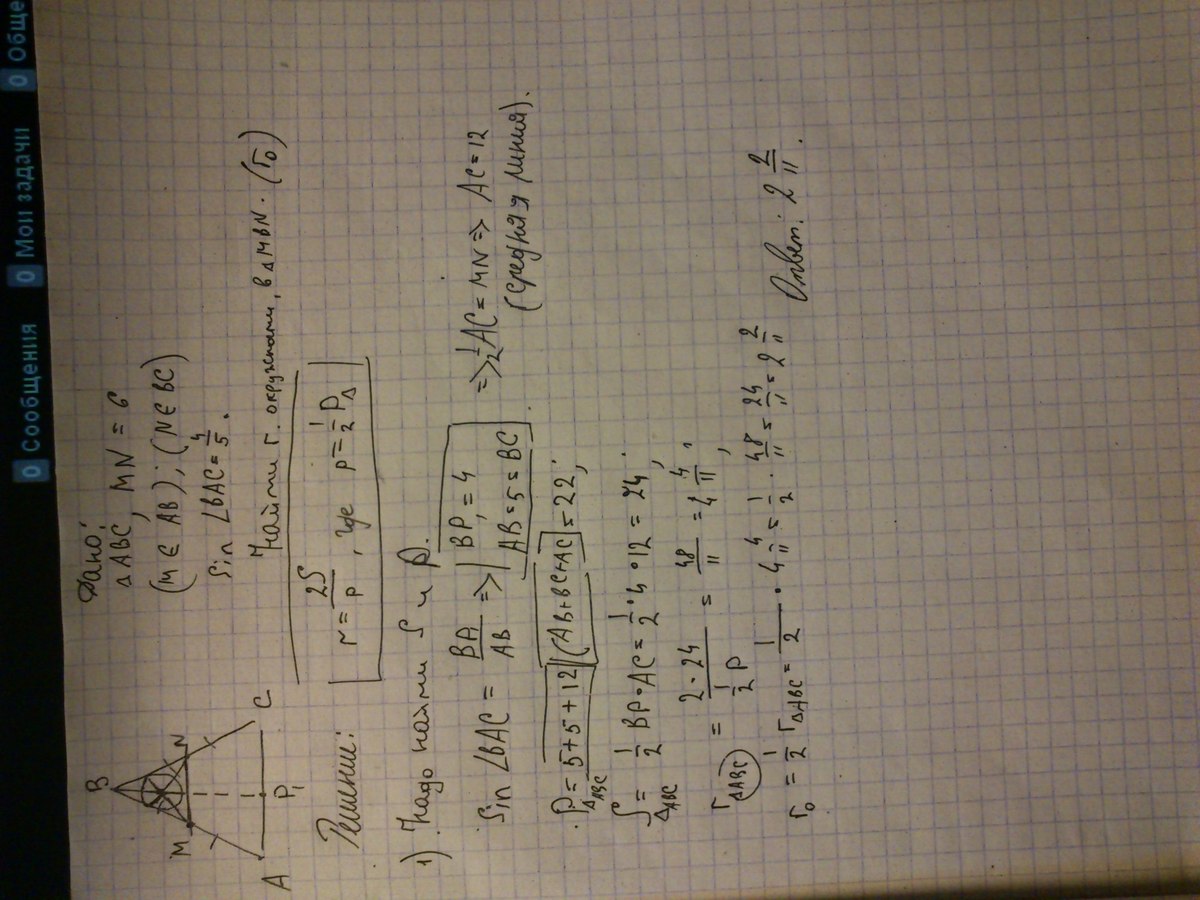 0 Сообщения 0 Мои задачи 0 Обще
Дано:
△ABC, MN = 6
(M ∈ AB); (N ∈ BC)
Sin ∠BAC = 4/5.
Найти r. окружности, в △MBN. (r₀)
B
M N
A P₁ C
Решение:
r = 2S/p, где p = 1/2 P△
1) Надо найти S и P.
Sin ∠BAC = BA/AB => BP₁ = 4 => 1/2 AC = MN => AC = 12
AB = 5 = BC (средняя линия).
P△ABC = 5+5+12 (AB+BC+AC) = 22;
S△ABC = 1/2 BP • AC = 1/2 • 4 • 12 = 24;
r△ABC = 2 • 24 / 1/2 P = 48/11 = 4 4/11;
r₀ = 1/2 r△ABC = 1/2 • 4 4/11 = 1/2 • 48/11 = 24/11 = 2 2/11
Ответ: 2 2/11.